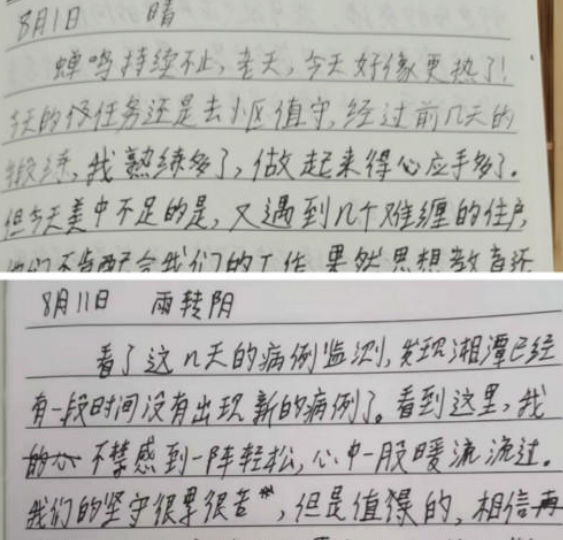 8月1日 晴
蝉鸣持续不止,老天,今天好像更热了!
今天的任务还是去小区值守,经过前几天的
锻练,我熟练多了,做起来得心应手多了。
但今天美中不足的是,又遇到几个难缠的住户,
他们不肯配合我们的工作 果然思想教育还
8月11日 雨转阴
看了这几天的病例监测,发现湘潭已经
有一段时间没有出现新的病例了。看到这里,我
不禁感到一阵轻松,心中一股暖流流过。
我们的坚守很累很苦,但是值得的,相信